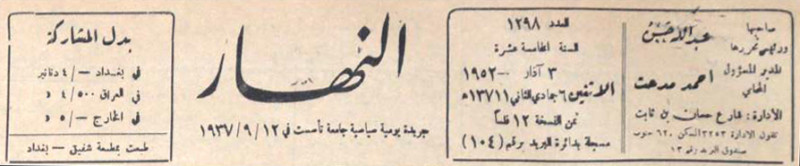 صاحبها
ورئيس تحريرها
عبد الله حسن
المدير المسؤول
المحامي
احمد مدحت
الادارة: شارع حسان بن ثابت
تلفون الادارة ٣٢٥٣ السكن ٦٢٠ جنوب
صندوق البريد رقم ١٣
العدد ١٢٩٨
السنة الخامسة عشرة
٣ آذار — ١٩٥٢
الاثنين ٦ جمادي الثاني ١٣٧١١هـ
ثمن النسخة ١٢ فلساً
مسجلة بدائرة البريد برقم (١٠٤)
النهار
جريدة يومية سياسية جامعة تأسست في ١٢/ ٩ / ١٩٣٧
بدل المشاركة
في بغداد —/ ٤ دنانير
في العراق ٥٠٠/ ٤ د
في الخارج —/ ٥ د
طبعت بمطبعة شفيق — بغداد